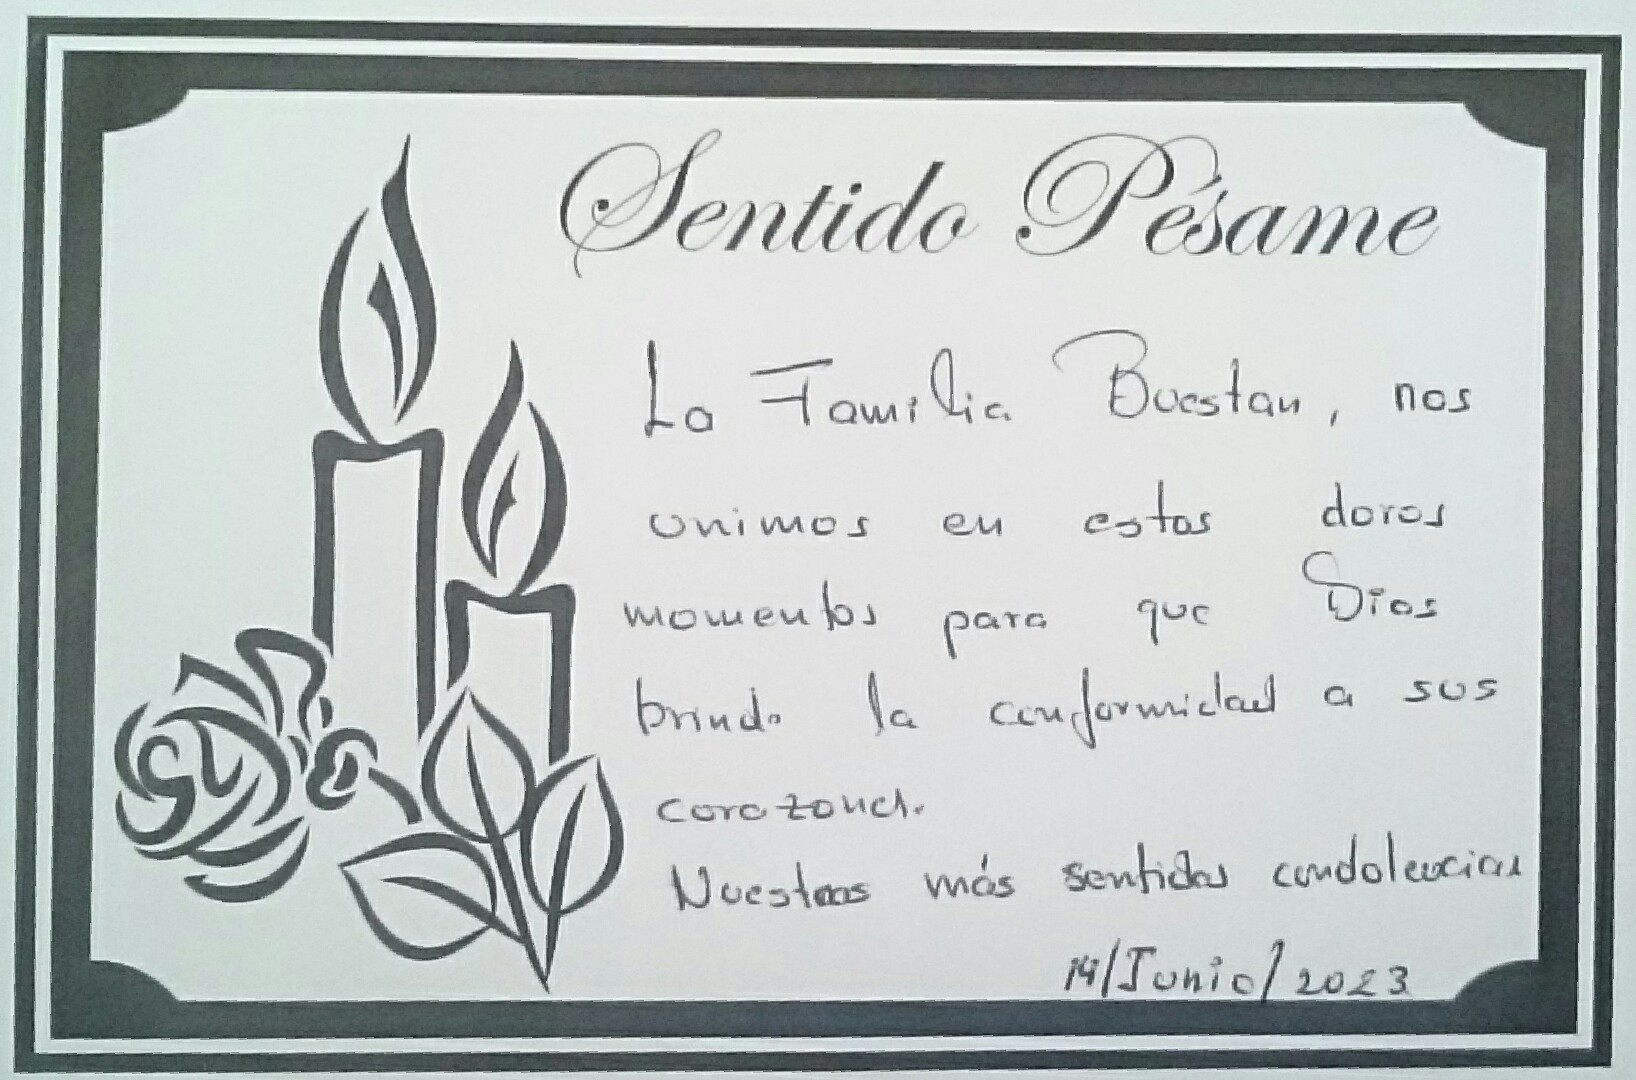 Sentido Pésame
La Familia Buestan, nos
unimos en estos duros
momentos para que Dios
brinde la conformidad a sus
corazones.
Nuestras más sentidas condolencias
14/Junio/2023